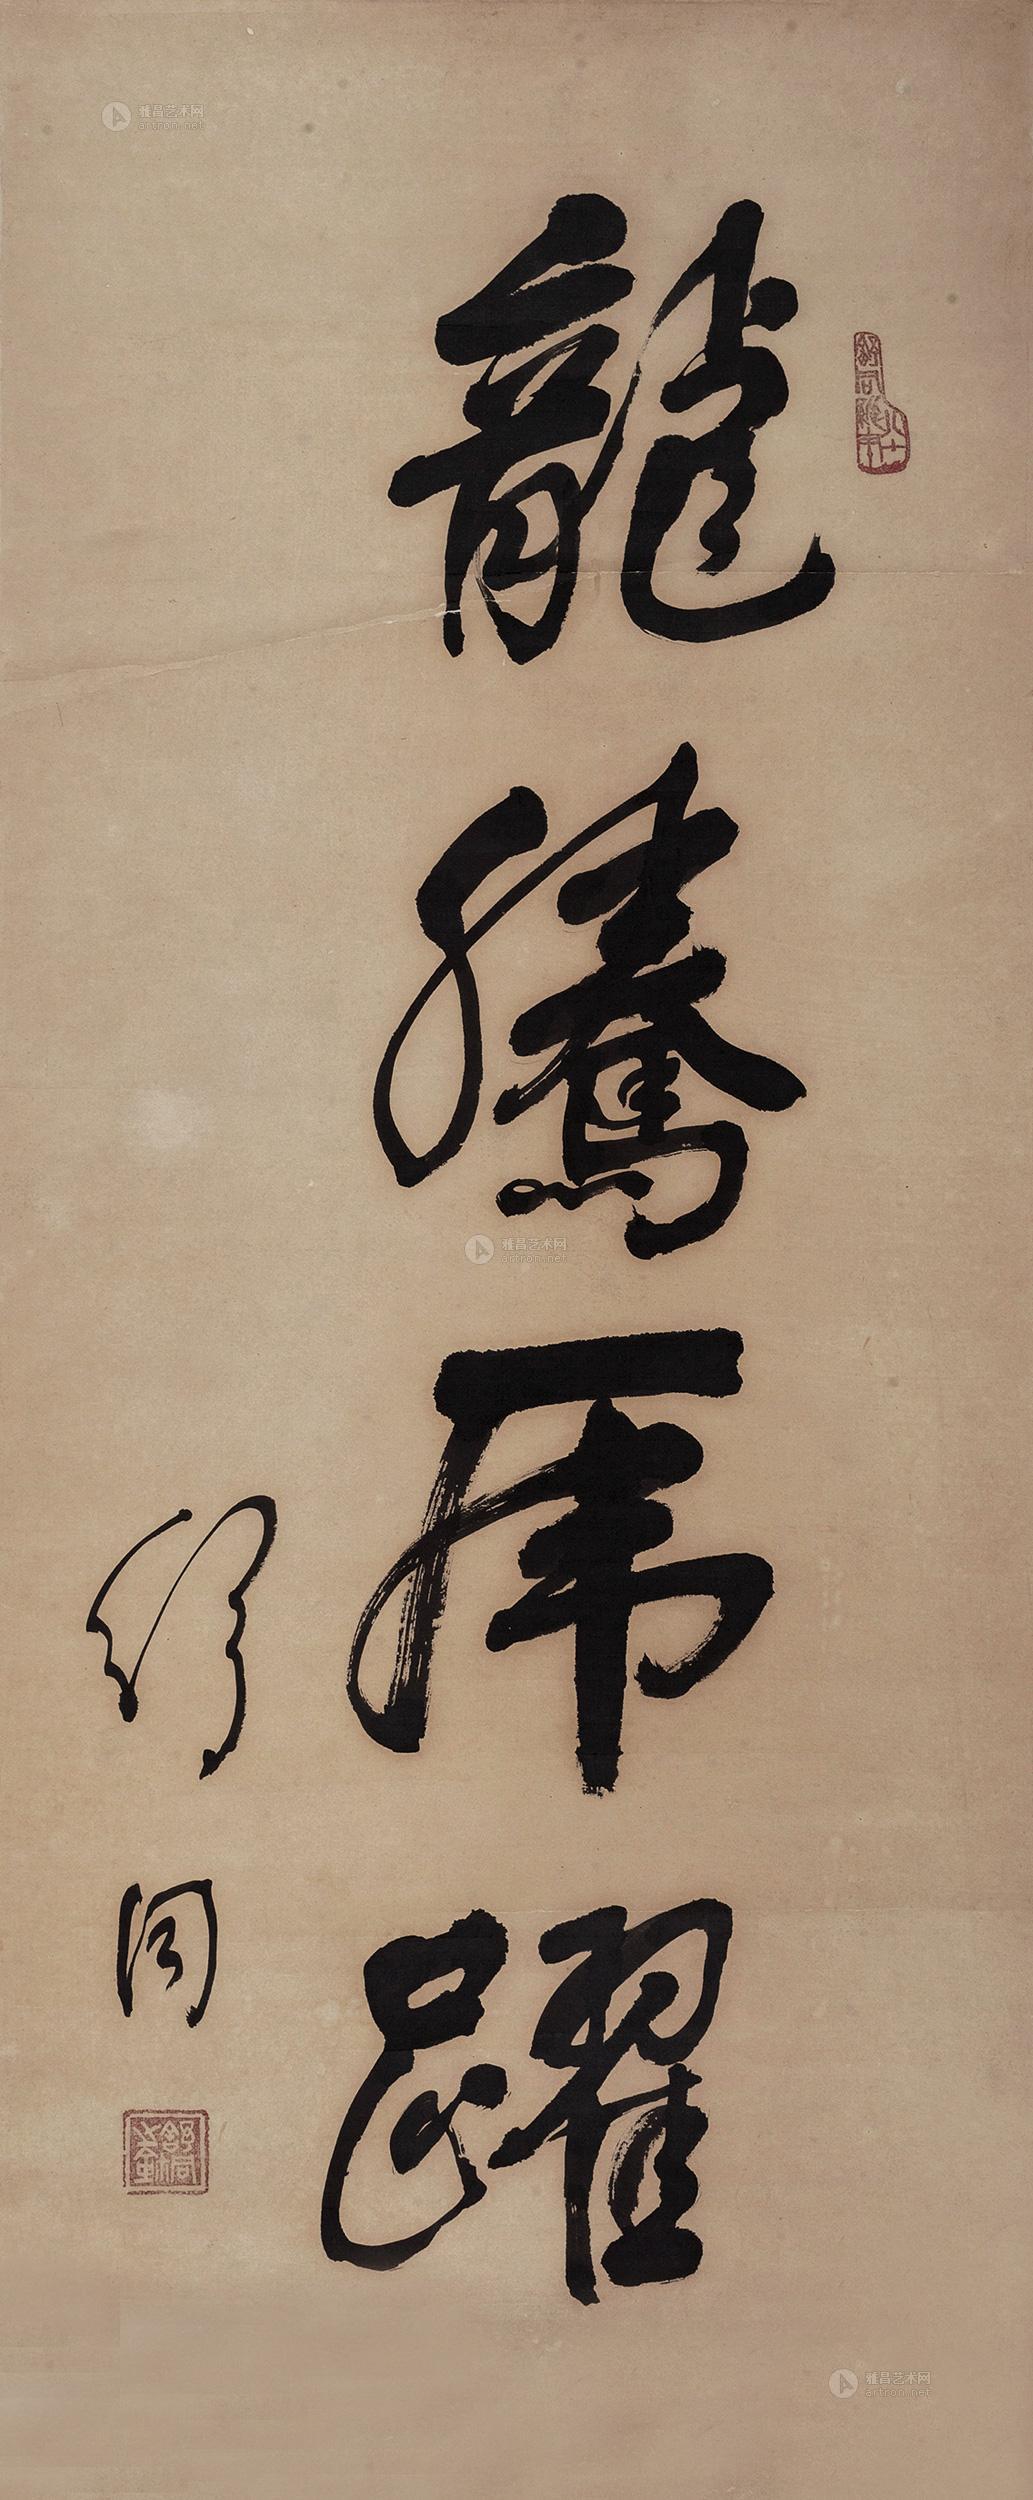 龍騰虎躍
舒同
雅昌艺术网
artron.net
雅昌艺术网
artron.net
雅昌艺术网
artron.net